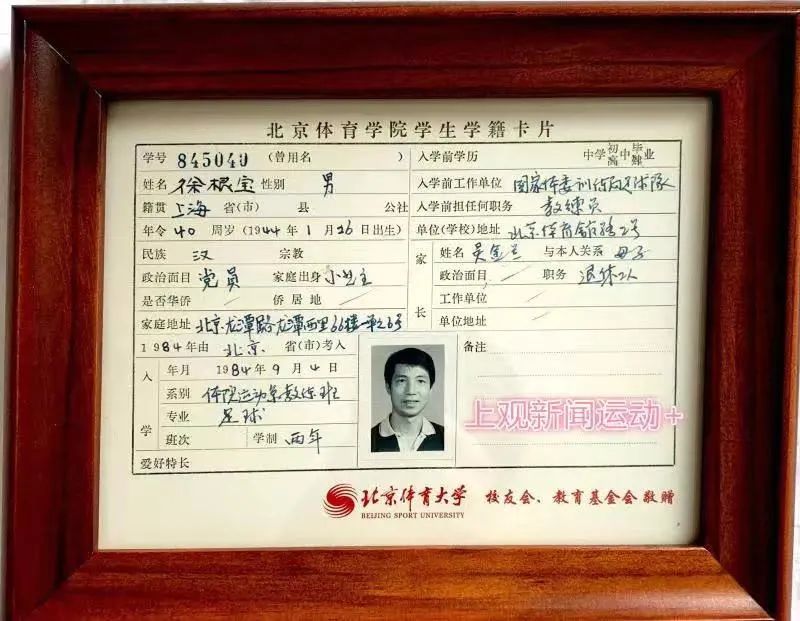 北京体育学院学生学籍卡片
学号 845049 (曾用名 )
姓名 徐根宝 性别 男
籍贯 上海 省(市) 县 公社
年令 40 周岁 (1944年1月16日出生)
民族 汉 宗教
政治面目 党员 家庭出身 小业主
是否华侨 / 侨居地 /
家庭地址 北京龙潭路龙潭西里66楼一单元6号
1984年由 北京 省(市)考入
入学
年月 1984年9月4日
系别 体院运动系教练班
专业 足球
班次 学制 两年
爱好特长
入学前学历 中学初高中毕肄业
入学前工作单位 国家体委训练局足球队
入学前担任何职务 教练员
单位(学校)地址 北京体育馆路2号
家长
姓名 吴金兰 与本人关系 母子
政治面目 / 职务 退休工人
工作单位 /
单位地址 /
备注
上观新闻运动+
北京体育大学 校友会、教育基金会敬赠
BEIJING SPORT UNIVERSITY